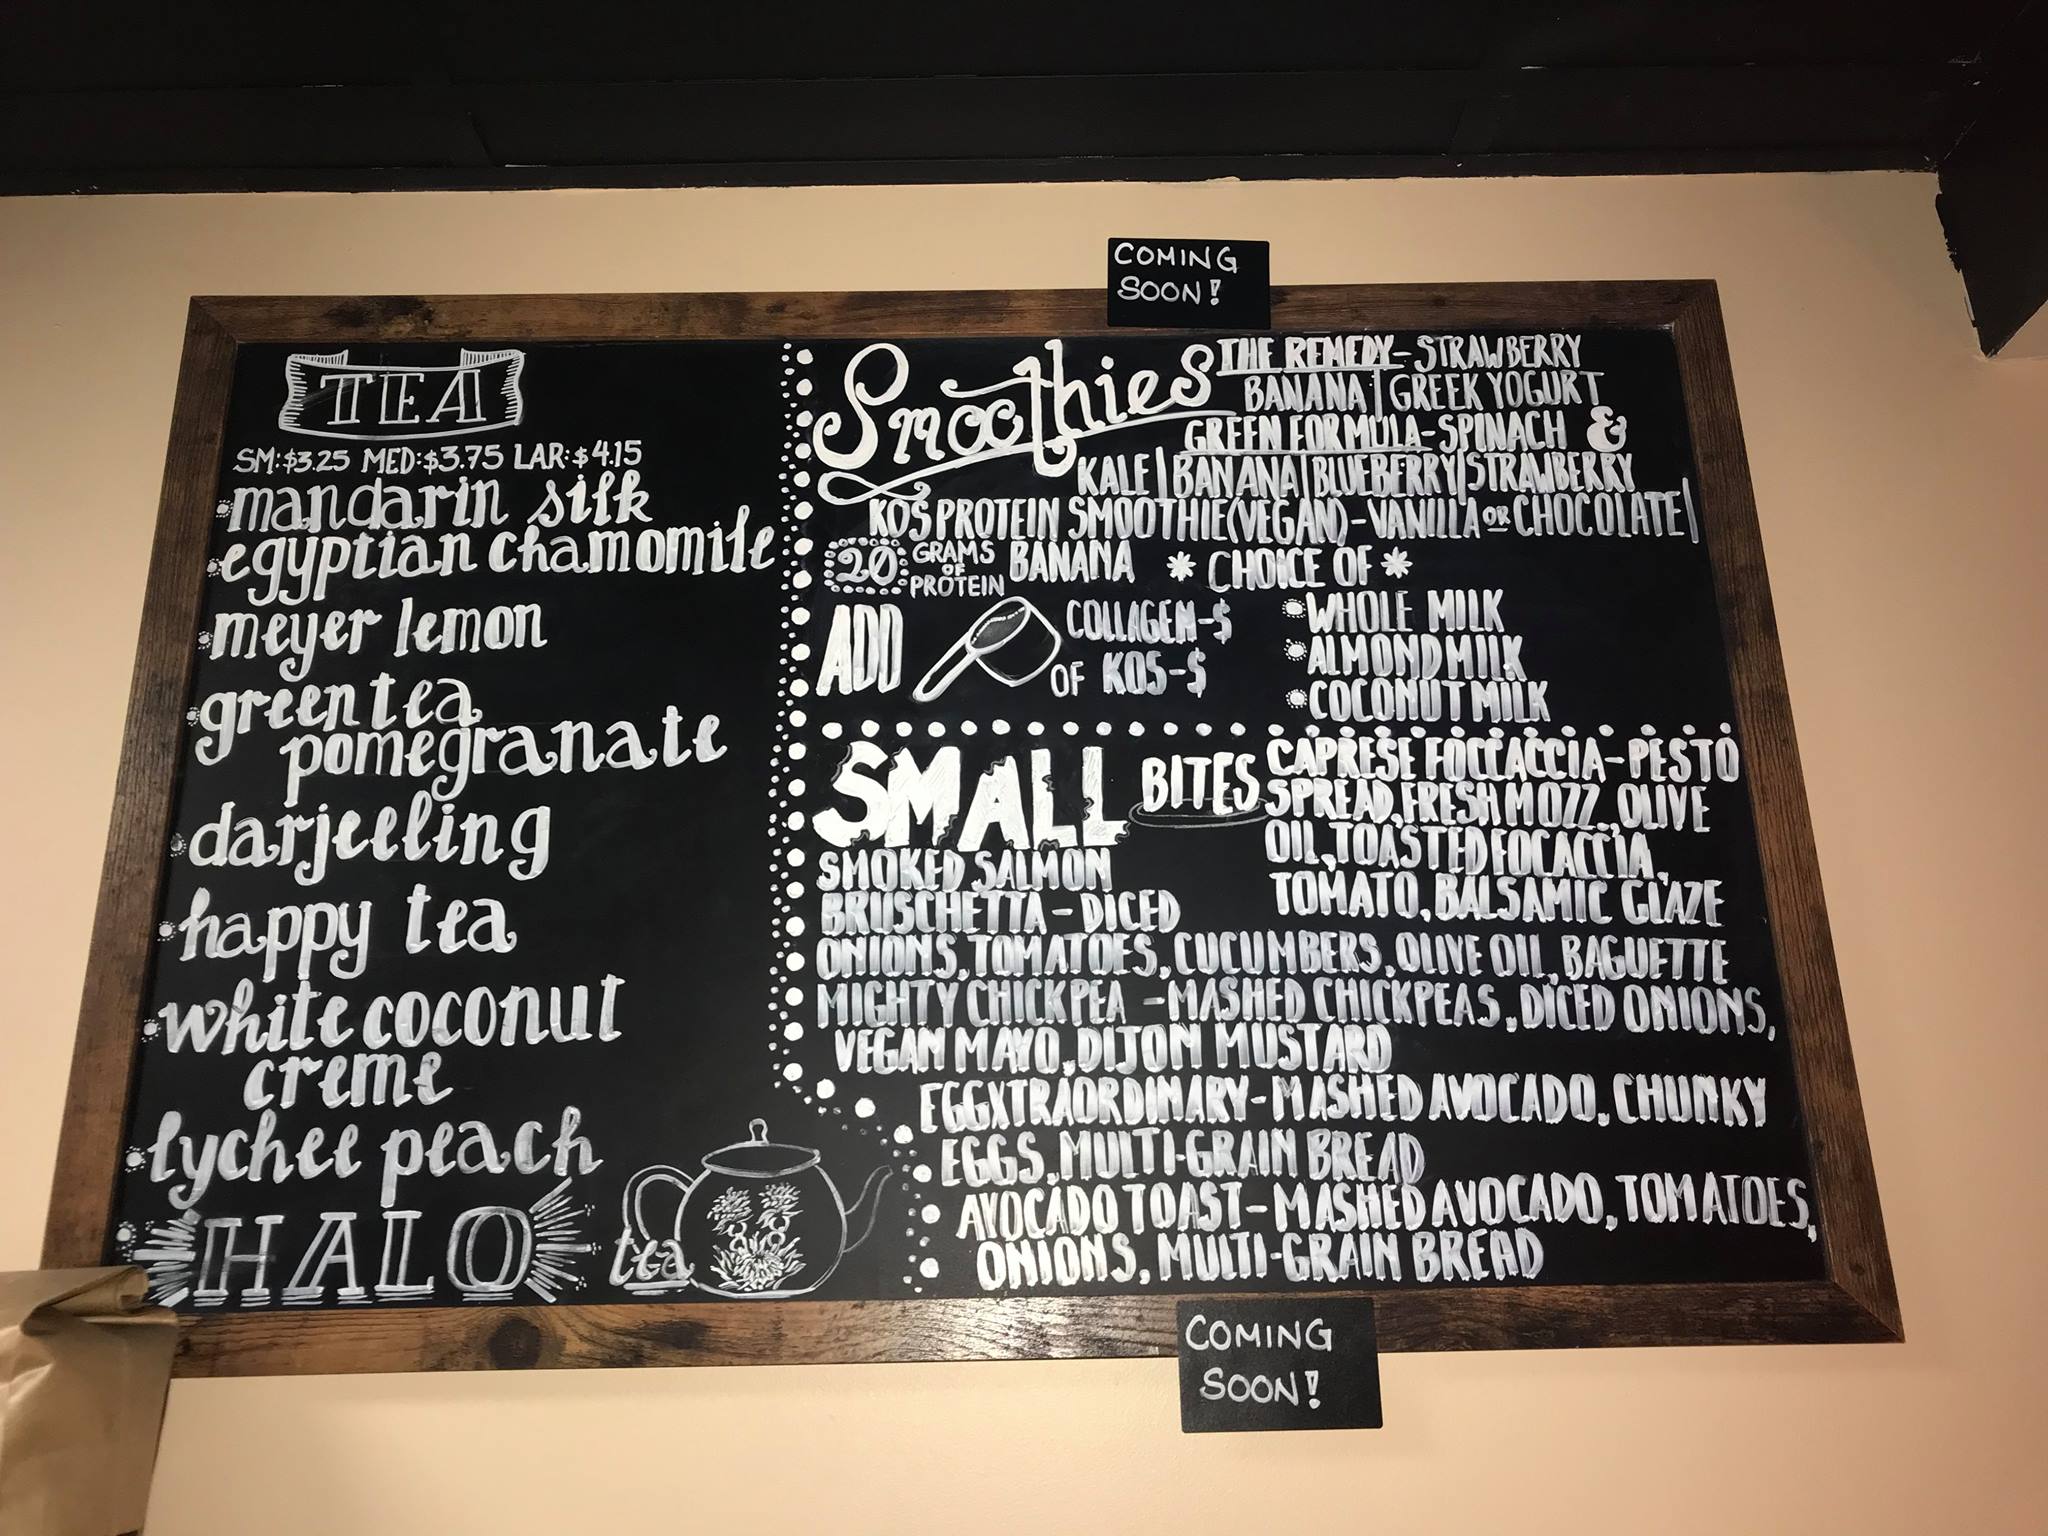 COMING
SOON!
TEA
SM:$3.25 MED:$3.75 LAR:$4.15
mandarin silk
egyptian chamomile
meyer lemon
green tea
pomegranate
darjeeling
happy tea
white coconut
creme
lychee peach
HALO
tea
Smoothies
THE REMEDY-STRAWBERRY
BANANA|GREEK YOGURT
GREEN FORMULA-SPINACH &
KALE|BANANA|BLUEBERRY|STRAWBERRY
KOS PROTEIN SMOOTHIE(VEGAN)-VANILLA OR CHOCOLATE|
BANANA
20 GRAMS
OF
PROTEIN
*CHOICE OF*
WHOLE MILK
ALMONDMILK
COCONUTMILK
ADD
COLLAGEN-$
OF KOS-$
SMALL BITES
CAPRESE FOCCACCIA-PESTO
SPREAD, FRESH MOZZ., OLIVE
OIL, TOASTED FOCACCIA,
TOMATO, BALSAMIC GLAZE
SMOKED SALMON
BRUSCHETTA-DICED
ONIONS, TOMATOES, CUCUMBERS, OLIVE OIL, BAGUETTE
MIGHTY CHICKPEA -MASHED CHICKPEAS, DICED ONIONS,
VEGAN MAYO, DIJON MUSTARD
EGGXTRAORDINARY-MASHED AVOCADO, CHUNKY
EGGS, MULTI-GRAIN BREAD
AVOCADO TOAST-MASHED AVOCADO, TOMATOES,
ONIONS, MULTI-GRAIN BREAD
COMING
SOON!